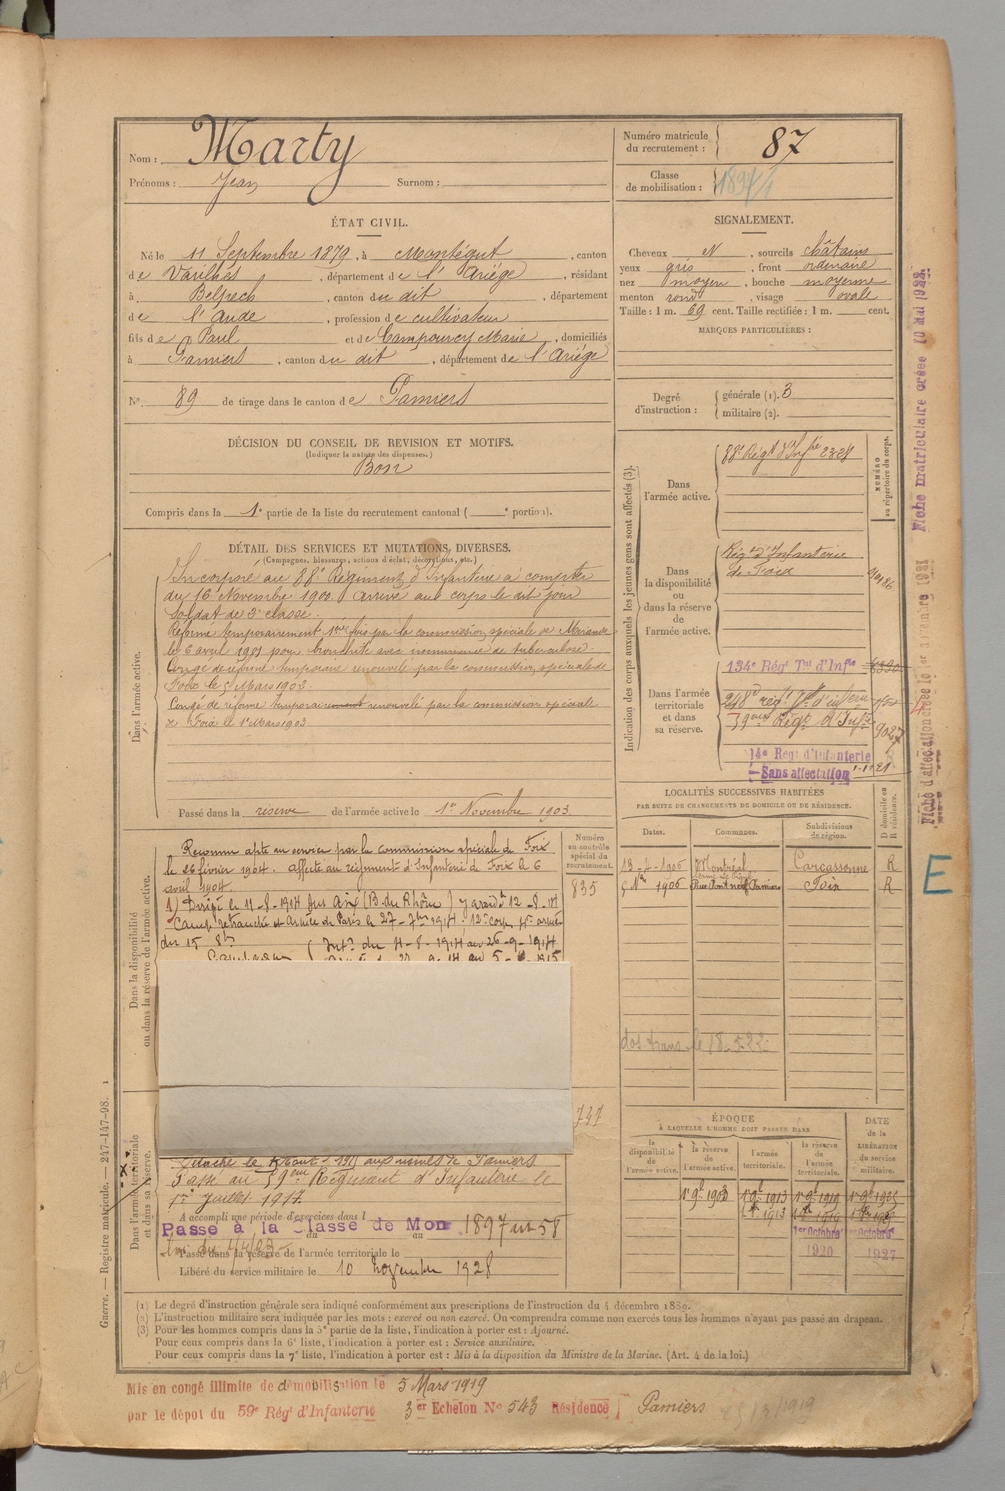 Nom : Marty
Prénoms : Jean Surnom :
Numéro matricule du recrutement : 87
Classe de mobilisation : 1897/4
ÉTAT CIVIL.
Né le 11 Septembre 1879, à Montégut, canton
de Varilhes, département de l'Ariège, résidant
à Belpech, canton du dit, département
de l'Aude, profession de cultivateur
fils de Paul et de Campourcy Marie, domiciliés
à Pamiers, canton du dit, département de l'Ariège
N° 89 de tirage dans le canton de Pamiers
SIGNALEMENT.
Cheveux N, sourcils châtains
yeux gris, front ordinaire
nez moyen, bouche moyenne
menton rond, visage ovale
Taille : 1 m. 69 cent. Taille rectifiée : 1 m. cent.
MARQUES PARTICULIÈRES :
Degré d'instruction : générale (1). 3
militaire (2).
DÉCISION DU CONSEIL DE REVISION ET MOTIFS.
(Indiquer la nature des dispenses.)
Bon
Compris dans la 1e partie de la liste du recrutement cantonal ( e portion).
DÉTAIL DES SERVICES ET MUTATIONS DIVERSES.
(Campagnes, blessures, actions d'éclat, décorations, etc.)
Dans l'armée active.
Incorporé au 88e Régiment d'Infanterie à compter
du 16 Novembre 1900. Arrivé au corps le dit jour
Soldat de 2e classe.
Réformé temporairement 1ère fois par la commission spéciale de
le 6 avril 1901 pour bronchite avec imminence de tuberculose.
Congé de réforme temporaire renouvelé par la commission spéciale de
Foix le 5 Mars 1902.
Congé de réforme temporairement renouvelé par la commission spéciale
de Foix le 1er Mars 1903
Passé dans la réserve de l'armée active le 1er Novembre 1903
Indication des corps auxquels les jeunes gens sont affectés (3).
NUMÉRO au répertoire du corps.
Dans l'armée active.
88e Régt d'Infrie 2328
Dans la disponibilité ou dans la réserve de l'armée active.
Régt d'Infanterie
de Foix
Dans l'armée territoriale et dans sa réserve.
134e Régt Tal d'Infie
59ème Régt d'Infie 9027
14e Régt d'Infanterie
Sans affectation
Fiche matriculaire créée 10 Mai 1922
Fiche d'affectation créée le 1er Novembre 1921
LOCALITÉS SUCCESSIVES HABITÉES
PAR SUITE DE CHANGEMENTS DE DOMICILE OU DE RÉSIDENCE.
Dates. Communes. Subdivisions de région. D domicile ou R résidence.
13-4-1906 Montréal Carcassonne R
8 Nbre 1906 Rue Pont neuf Pamiers Foix R
dos trans le 18-5-22
E
Dans la disponibilité ou dans la réserve de l'armée active.
Numéro au contrôle spécial du recrutement.
835
Reconnu apte au service par la commission spéciale de Foix
le 26 février 1904. Affecté au régiment d'Infanterie de Foix le 6
avril 1904.
1) Dirigé le 11-8-1914 sur Aix (B. du Rhône) y arrivé le 12-8-14
Camp retranché et Armée de Paris le 27-7bre 1914. 12e corps 4e armée
du 15 8bre
Int. du 11-8-1914 au 26-9-1914
747
ÉPOQUE
À LAQUELLE L'HOMME DOIT PASSER DANS
la disponibilité de l'armée active. la réserve de l'armée active. l'armée territoriale. la réserve de l'armée territoriale.
DATE de la LIBÉRATION du service militaire.
1er 9bre 1903 1er 9bre 1913 1er 9bre 1919 1er 9bre 1925
1er Octobre 1920 1er Octobre 1927
Dans l'armée territoriale et dans sa réserve.
Détaché le 1er Août 1915 aux usines de Pamiers
Passé au 59ème Régiment d'Infanterie le
1er Juillet 1917
A accompli une période d'exercices dans l
du au
Passé à la Classe de Mon 1897 art 58
Passé dans la réserve de l'armée territoriale le
Libéré du service militaire le 10 novembre 1928
(1) Le degré d'instruction générale sera indiqué conformément aux prescriptions de l'instruction du 4 décembre 1889.
(2) L'instruction militaire sera indiquée par les mots : exercé ou non exercé. On comprendra comme non exercés tous les hommes n'ayant pas passé au drapeau.
(3) Pour les hommes compris dans la 5e partie de la liste, l'indication à porter est : Ajourné.
Pour ceux compris dans la 6e liste, l'indication à porter est : Service auxiliaire.
Pour ceux compris dans la 7e liste, l'indication à porter est : Mis à la disposition du Ministre de la Marine. (Art. 4 de la loi.)
Guerre. — Registre matricule. — 247-147-98.
Mis en congé illimité de démobilisation le 5 Mars 1919
par le dépôt du 59e Régt d'Infanterie 3er Echelon No 543 Résidence Pamiers